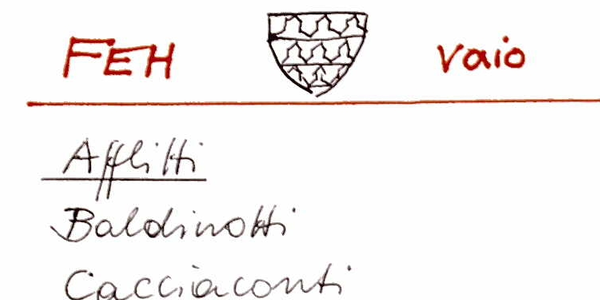 FEH Vaio
Afflitti
Baldinotti
Cacciaconti